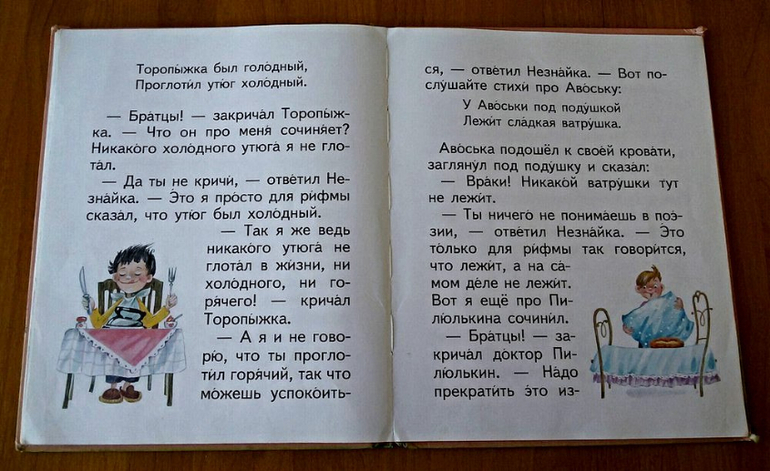 Торопы́жка был голо́дный,
Проглоти́л утю́г холо́дный.
— Бра́тцы! — закрича́л Торопы́ж-
ка. — Что он про меня́ сочиня́ет?
Никако́го холо́дного утюга́ я не гло-
та́л.
— Да ты не кричи́, — отве́тил Не-
зна́йка. — Э́то я про́сто для ри́фмы
сказа́л, что утю́г был холо́дный.
— Так я же ведь
никако́го утюга́ не
глота́л в жи́зни, ни
холо́дного, ни го-
ря́чего! — крича́л
Торопы́жка.
— А я и не гово-
рю́, что ты прогло-
ти́л горя́чий, так что
мо́жешь успоко́ить-
ся, — отве́тил Незна́йка. — Вот по-
слу́шайте стихи́ про Аво́ську:
У Аво́ськи под поду́шкой
Лежи́т сла́дкая ватру́шка.
Аво́ська подошёл к свое́й крова́ти,
загляну́л под поду́шку и сказа́л:
— Вра́ки! Никако́й ватру́шки тут
не лежи́т.
— Ты ничего́ не понима́ешь в поэ́-
зии, — отве́тил Незна́йка. — Э́то
то́лько для ри́фмы так говори́тся,
что лежи́т, а на са́-
мом де́ле не лежи́т.
Вот я ещё про Пи-
лю́лькина сочини́л.
— Бра́тцы! — за-
крича́л до́ктор Пи-
лю́лькин. — На́до
прекрати́ть э́то из-